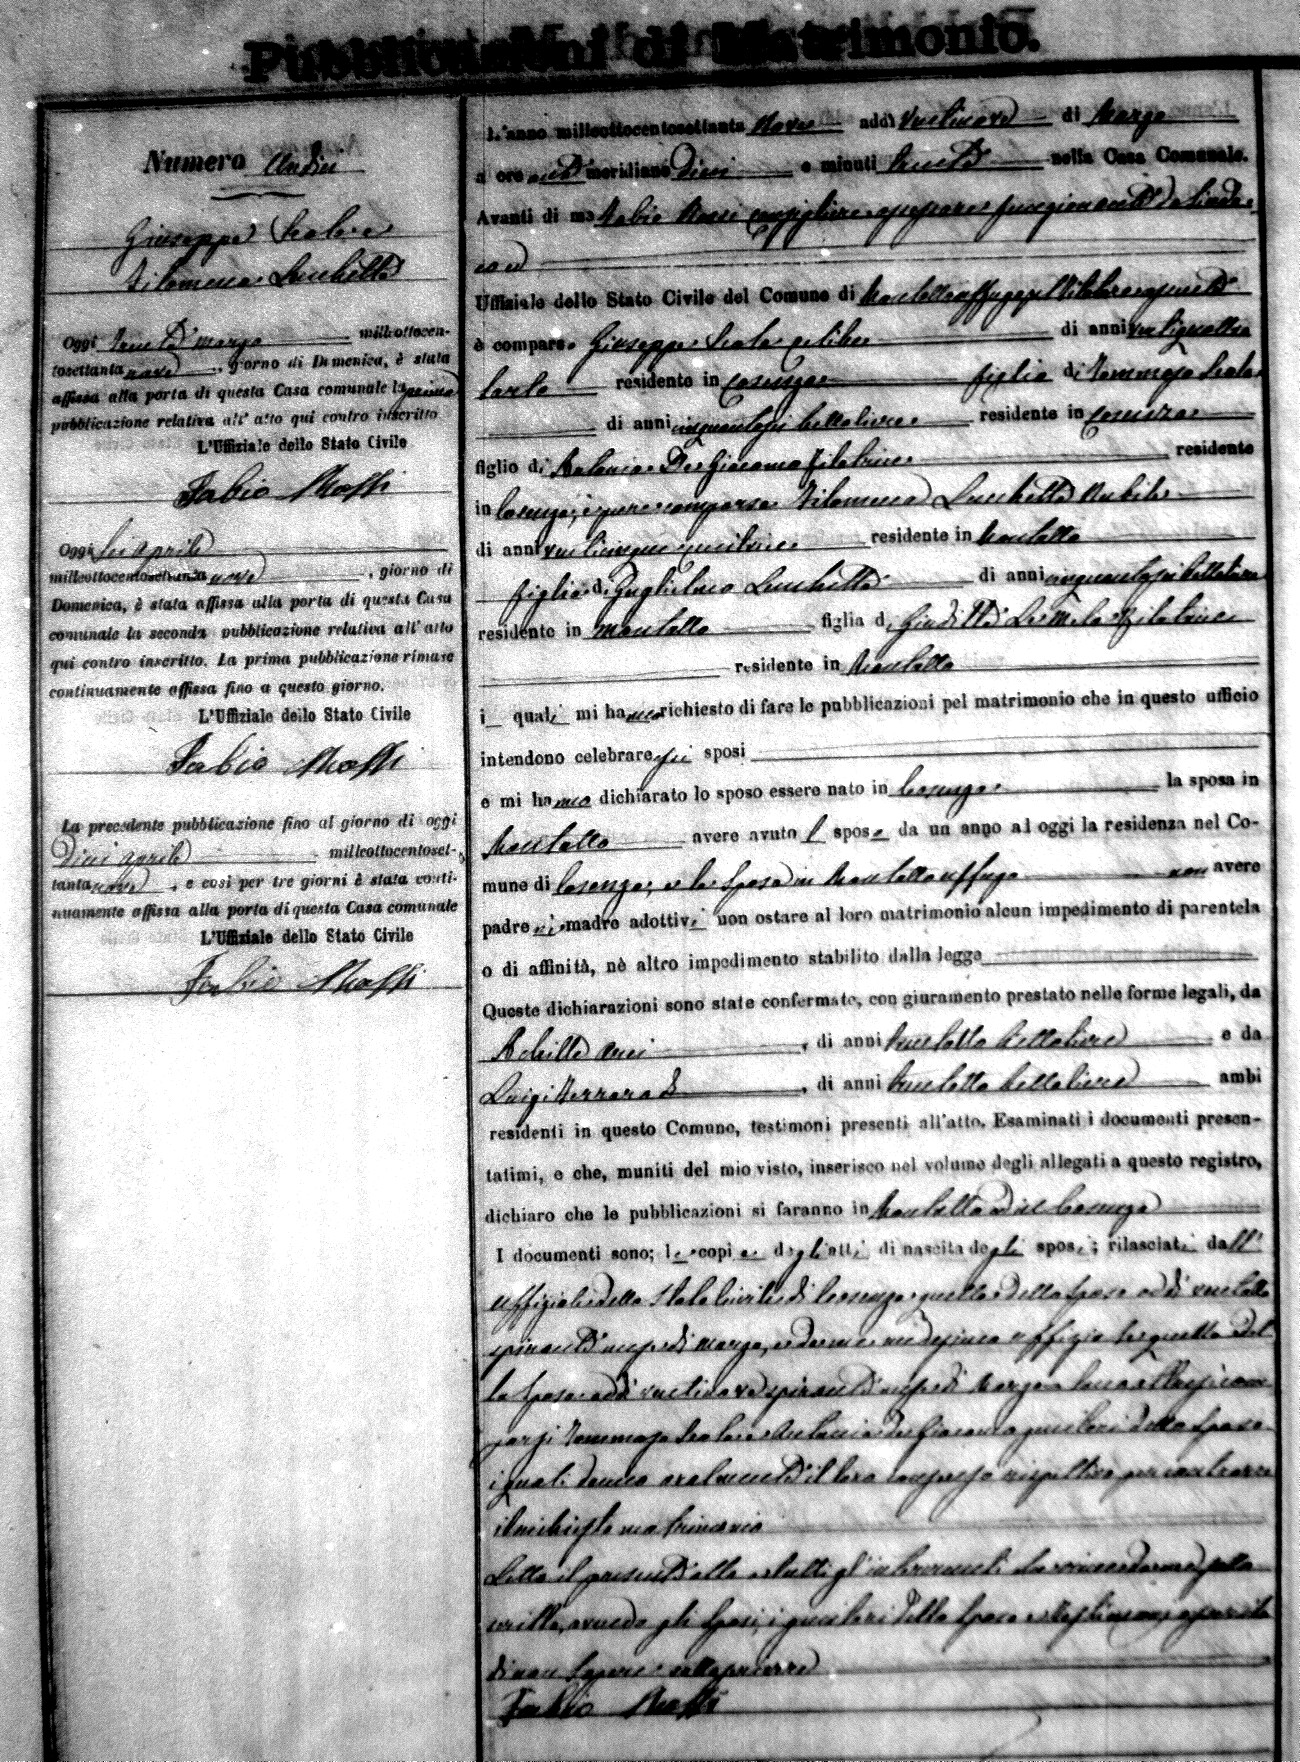 Pubblicazioni di Matrimonio.
Numero Undici
Giuseppe Scalese
Filomena Lucchetta
Oggi trenta marzo milleottocen-
tosettanta nove, giorno di Domenica, è stata
affissa alla porta di questa Casa comunale la prima
pubblicazione relativa all' atto qui contro inscritto
L'Uffiziale dello Stato Civile
Fabio Rossi
Oggi sei aprile
milleottocentosettanta nove, giorno di
Domenica, è stata affissa alla porta di questa Casa
comunale la seconda pubblicazione relativa all' atto
qui contro inscritto. La prima pubblicazione rimase
continuamente affissa fino a questo giorno.
L'Uffiziale dello Stato Civile
Fabio Rossi
La precedente pubblicazione fino al giorno di oggi
Dieci aprile milleottocentoset-
tanta nove, e così per tre giorni è stata conti-
nuamente affissa alla porta di questa Casa comunale
L'Uffiziale dello Stato Civile
Fabio Rossi
L'anno milleottocentosettanta Nove addì Ventinove di Marzo
a ore anti meridiane dieci e minuti trenta nella Casa Comunale.
Avanti di me Fabio Rossi consigliere assessore funzionante da Sinda-
co ed
Uffiziale dello Stato Civile del Comune di Montalto Uffugo
è comparso Giuseppe Scalese celibe di anni ventiquattro
sarto residente in Cosenza figlio di Tommaso Scalese
di anni cinquantasei bettoliere residente in Cosenza
figlio di Antonia De Giacomo filatrice residente
in Cosenza; è pure comparsa Filomena Lucchetta Nubile
di anni venticinque residente in Montalto
figlia di Guglielmo Lucchetta di anni cinquantasei bettoliere
residente in Montalto figlia di Giuditta filatrice
residente in Montalto
i quali mi hanno richiesto di fare le pubblicazioni pel matrimonio che in questo ufficio
intendono celebrare sposi
e mi hanno dichiarato lo sposo essere nato in Cosenza la sposa in
Montalto avere avuto l sposo da un anno ad oggi la residenza nel Co-
mune di Cosenza, e la sposa in Montalto Uffugo non avere
padre nè madre adottivi non ostare al loro matrimonio alcun impedimento di parentela
o di affinità, nè altro impedimento stabilito dalla legge
Queste dichiarazioni sono state confermate, con giuramento prestato nelle forme legali, da
Achille, di anni trentotto bettoliere e da
Luigi Ferraro, di anni trentotto bettoliere ambi
residenti in questo Comune, testimoni presenti all'atto. Esaminati i documenti presen-
tatimi, e che, muniti del mio visto, inserisco nel volume degli allegati a questo registro,
dichiaro che le pubblicazioni si faranno in Montalto ed in Cosenza
I documenti sono; le copie degli atti di nascita degli sposi; rilasciati dall'
uffiziale dello Stato Civile di Cosenza quella dello sposo addì ventotto
spirante mese di marzo, e da me uffizio quella del-
la sposa addì ventinove spirante mese di Marzo
Tommaso Scalese Antonia de Giacomo genitori dello sposo
i quali danno oralmente il loro consenso rispettivo per contrarre
il richiesto matrimonio
Letto il presente atto a tutti gl'intervenuti da me sotto-
scritto, avendo gli sposi, i genitori dello sposo e testimoni asserito
di non sapere sottoscrivere
Fabio Rossi